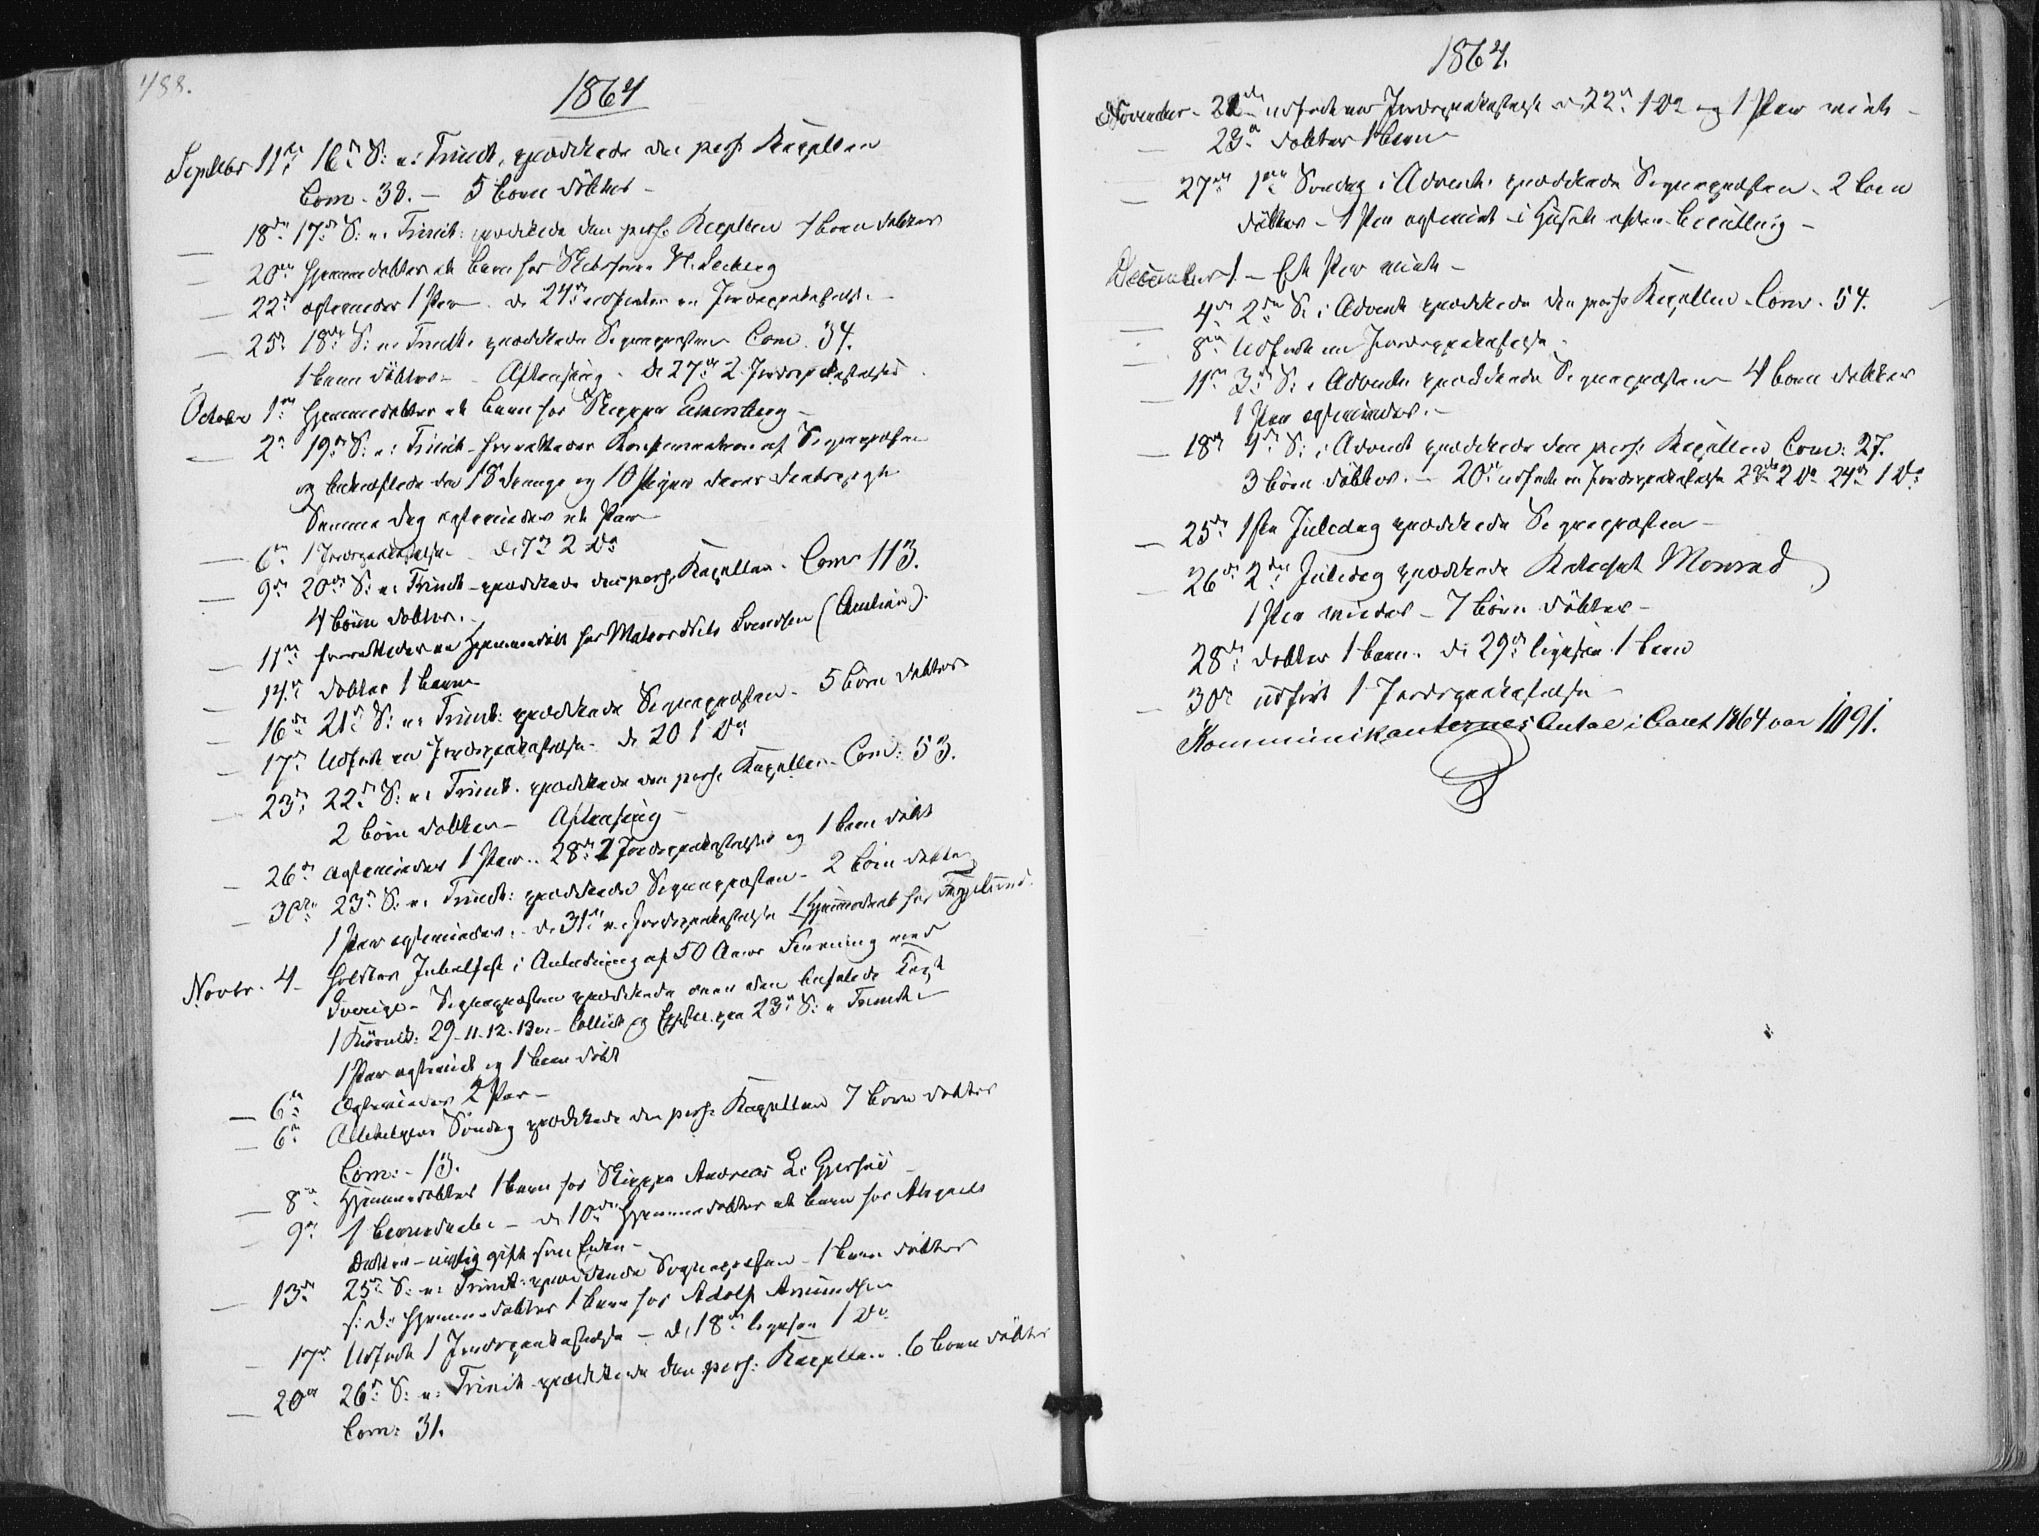 488.
1864
Septbr 11te 16de S: e: Trinit. prædikede den pers: Kapellan
Com. 38. — 5 børn døbtes —
— 18de 17de S: e. Trinit: prædikede den pers: Kapellan 4 børn døbtes
— 20de hjemmedøbtes et barn for
— 22de ægteviedes 1 Par — d. 24de udførtes en Jordpaakastelse
— 25de 18de S: e. Trinit. prædikede Sognepræsten Com. 34.
1 barn døbtes — Aftensang — D. 27de 2 Jordpaakastelser
October 1ste hjemmedøbtes et barn for Skipper
— 2den 19de S: e: Trinit. forrettedes Konfirmation af Sognepræsten
og bekræftede da 18 drenge og 10 Piger deres
Samme dag ægteviedes et Par
— 6te 1 Jordpaakastelse d. 7de 2 do
— 9de 20de S: e: Trinit — prædikede den pers: Kapellan. Com. 113.
4 børn døbtes.
— 11te forrettedes en Hjemmedåb for
— 14de døbtes 1 barn
— 16de 21de S: e: Trinit: prædikede Sognepræsten — 5 børn døbtes
— 17de Udført en Jordpaakastelse — d. 20 1 do
— 23de 22de S: e: Trinit. prædikede den pers: Kapellan — Com: 53.
2 børn døbtes — Aftensang —
— 26de ægteviedes 1 Par. 28de 2 Jordpaakastelser og 1 barn døbt
— 30te 23de S: e. Trinit: prædikede Sognepræsten — 2 børn døbtes
1 Par ægteviedes. — d. 31te en Jordpaakastelse 1 Hjemmedaab for
Novbr. 4. holdtes Jubelfest i Anledning af 50 Aars Forening med
Sverige — Sognepræsten prædikede over den befalede Text
29-11.12.13 — Collect og Epistel paa 23de S: e Trinit.
1 Par ægteviet og 1 barn døbt
— 6te ægteviedes 2 Par —
— 6te Allehelgens Søndag prædikede den pers: Kapellan 7 børn døbtes
Com: — 13.
— 8de Hjemmedøbtes 1 barn for Skipper Andreas L.
— 9de 1 barnedaab — d. 10de Hjemmedøbtes et barn for

— 13de 25de S: e: Trinit: prædikede Sognepræsten — 1 barn døbtes
s: D: Hjemmedøbtes 1 barn for Adolf Amundsen
— 17de Udført 1 Jordpaakastelse — d. 18de ligesaa 1 do
— 20de 26de S: e: Trinit — prædikede den pers: Kapellan. 6 børn døbtes
Com: 31.
1864.
November — 21de udført en Jordpaakastelse d. 22de 1 do og 1 Par viet —
— 23de døbtes 1 barn
— 27de 1ste Søndag i Advent. prædikede Sognepræsten — 2 børn
døbtes — 1 Par ægteviet i Huset efter bevilling —
December 1. — Et Par viet —
— 4de 2den S. i Advent prædikede den pers: Kapellan. Com. 54.
— 8de Udført en Jordpaakastelse.
— 11te 3de S: i Advent prædikede Sognepræsten 4 børn døbtes
1 Par ægteviedes. —
— 18de 4de S: i Advent prædikede den pers: Kapellan Com: 27.
3 børn døbtes. — 20de udført en Jordpaakastelse 2 do 24de 1 do
— 25de 1ste Juledag prædikede Sognepræsten —
— 26de 2den Juledag prædikede Kateket Monrad
1 Par viedes — 7 børn døbtes —
28de døbtes 1 barn. d: 29de ligesaa 1 barn
— 30te udført 1 Jordpaakastelse —
Kommunikanternes Antal i Aaret 1864 var 1091.